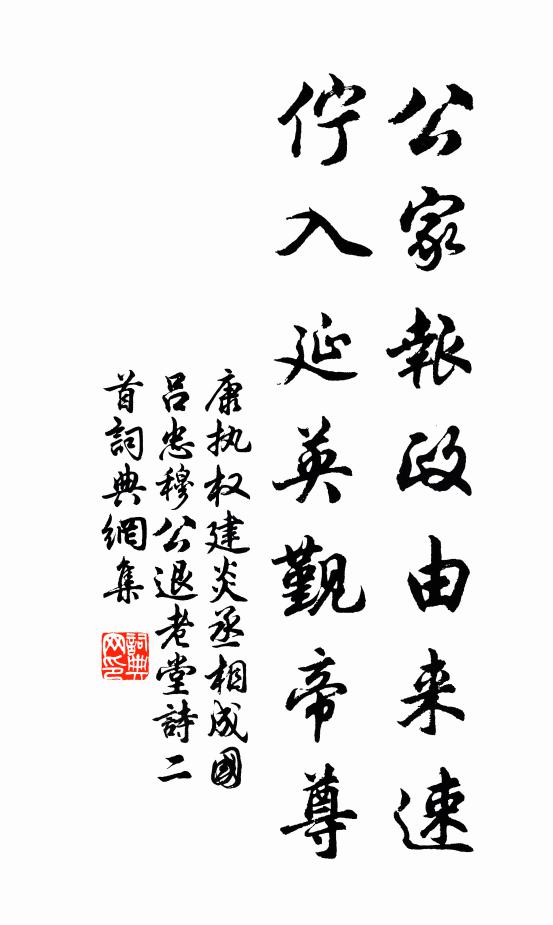 公家報政由来速
佇入延英觐帝尊
康执权建炎丞相成國
吕忠穆公退老堂詩二
首詞典網集
詞典
网印